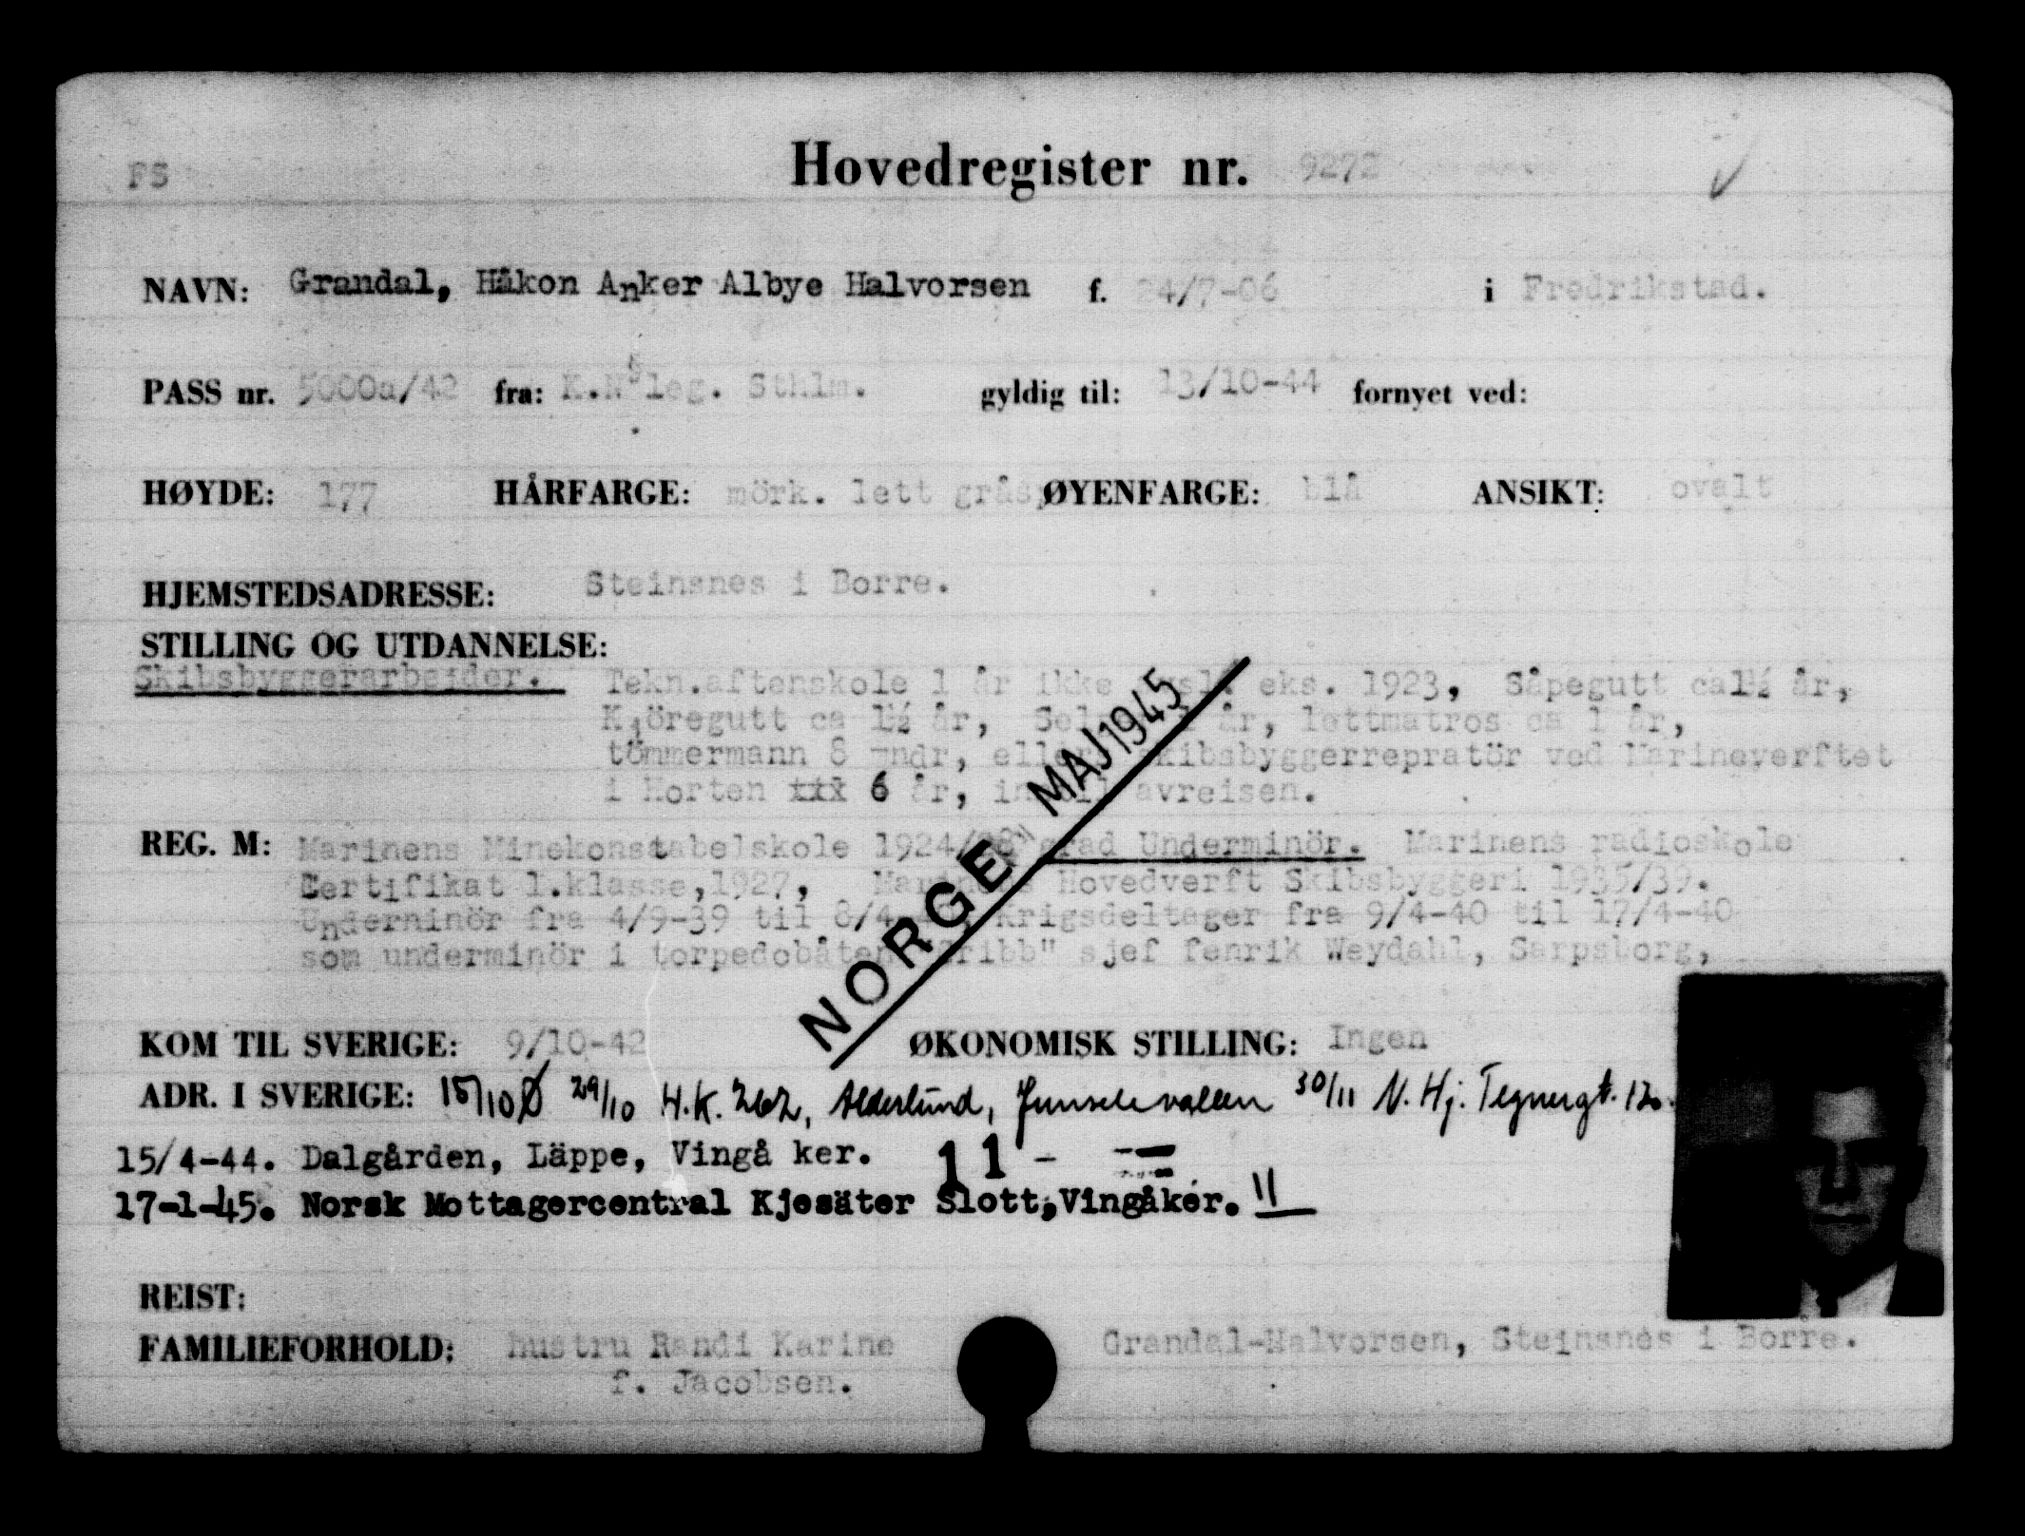 FS Hovedregister nr. 9272
NAVN: Grandal, Håkon Anker Albye Halvorsen f. 24/7-06 i Fredrikstad.
PASS nr. 5000a/42 fra: K.N. leg. Sthlm. gyldig til: 13/10-44 fornyet ved:
HØYDE: 177 HÅRFARGE: mörk. lett grås ØYENFARGE: blå ANSIKT: ovalt
HJEMSTEDSADRESSE: Steinsnes i Borre.
STILLING OG UTDANNELSE:
Skibsbyggerarbeider. Tekn.aftenskole 1 år ikke eks. 1923, Såpegutt ca 1½ år,
Kjöregutt ca 1½ år, år, lettmatros ca 1 år,
tömmermann 8 mndr, eller skibsbyggerrepratör ved Marineverftet
i Horten xxx 6 år, avreisen.
NORGE MAJ 1945
REG. M: Marinens Minekonstabelskole 1924/ grad Underminör. Marinens radioskole
Certifikat 1.klasse,1927, Marinens Hovedverft Skibsbyggeri 1935/39.
Underminör fra 4/9-39 til 8/4-40, Krigsdeltager fra 9/4-40 til 17/4-40
som underminör i torpedobåten "Gribb" sjef fenrik Weydahl, Sarpsborg,
KOM TIL SVERIGE: 9/10-42 ØKONOMISK STILLING: Ingen
ADR. I SVERIGE: 15/10 Ø 29/10 H.K. 262, Alderlund, 30/11 N. Hj. Tegnergt. 12.
15/4-44. Dalgården, Läppe, Vingå ker. 11 -
17-1-45. Norsk Mottagercentral Kjesäter Slott, Vingåker. 11
REIST:
FAMILIEFORHOLD: hustru Randi Karine Grandal-Halvorsen, Steinsnes i Borre.
f. Jacobsen.